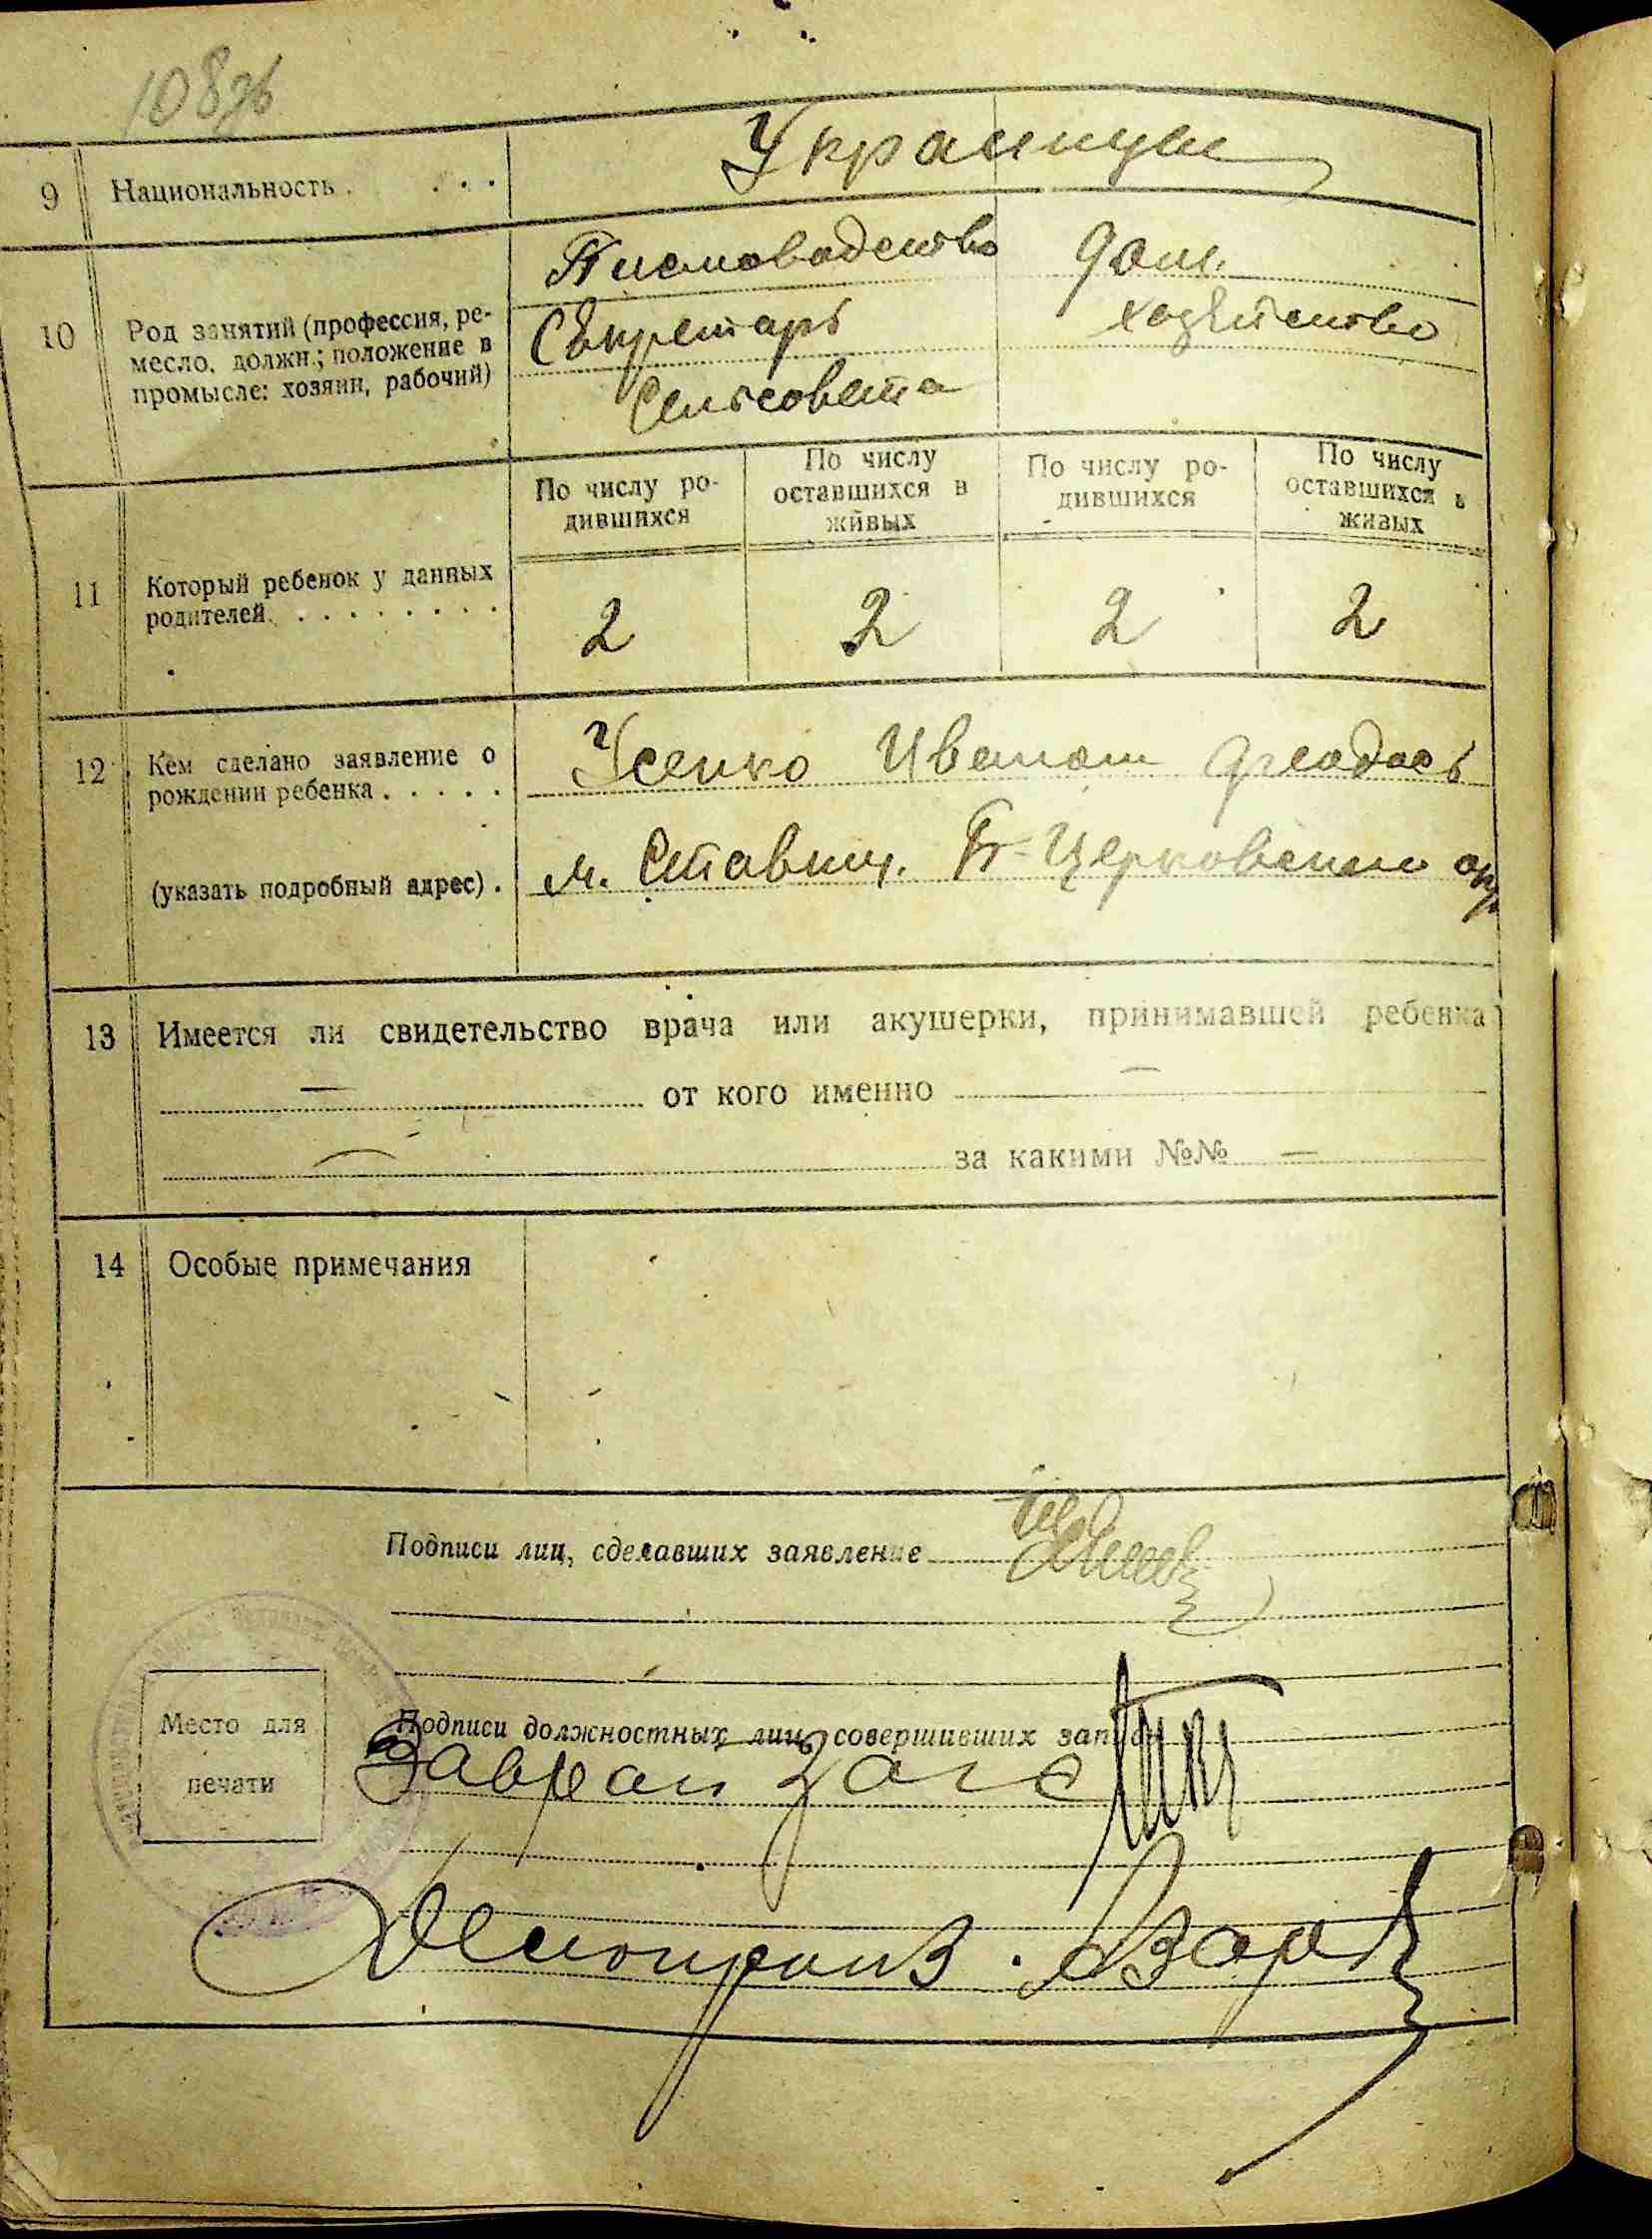 108
9 Национальность . . . . Украинцы
10 Род занятий (профессия, ре-
месло, должн.; положение в
промысле: хозяин, рабочий)
Писмоводство
Секретарь
Сельсовета
Дом.
хозяйство
11 Который ребенок у данных
родителей. . . . . . . . .
По числу ро-
дившихся
По числу
оставшихся в
живых
По числу ро-
дившихся
По числу
оставшихся в
живых
2 2 2 2
12 Кем сделано заявление о
рождении ребенка . . . . .
Усенко Иваном
(указать подробный адрес) .
м. Ставищ. Б-Церковского окр.
13 Имеется ли свидетельство врача или акушерки, принимавшей ребенка
— от кого именно —
— за какими №№ —
14 Особые примечания
Подписи лиц, сделавших заявление
Место для
печати
Подписи должностных лиц, совершивших запись
Заврай загс